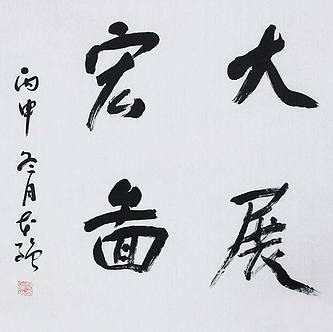 大展
宏图
丙申冬月